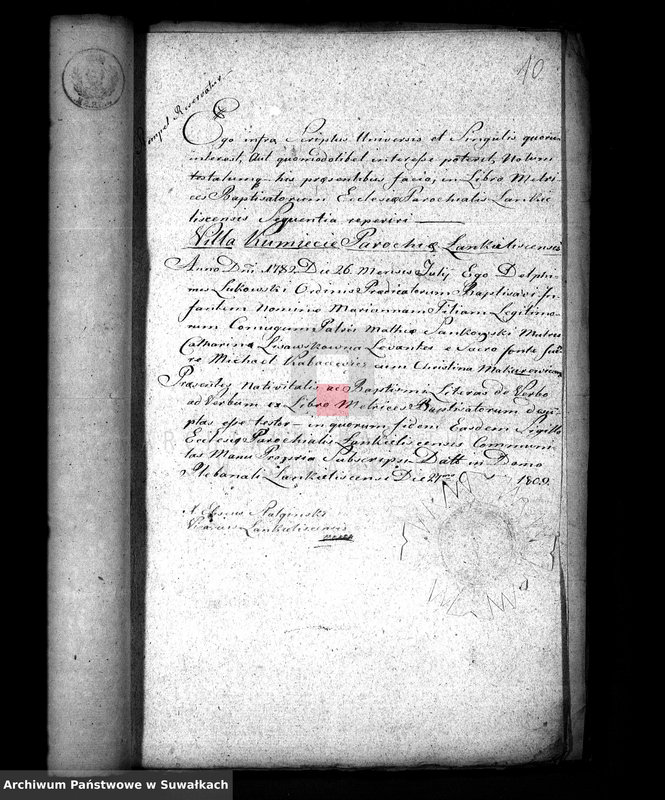 10
Ego infra Scriptus Universis et Singulis quorum
interest, Aut quomodolibet interesse poterit, Notum
testatumq his præsentibus facio, in Libro Metri
ces Baptisatorum Ecclesiæ Parochialis Lankie
liscensis Sequentia reperiri
Villa Kumiecie Parochiæ Lankieliscensis
Anno Dni 1782 Die 26 Mensis Julij Ego Delphi
nus Lukowski Ordinis Prædicatorum Baptisavi In
fantem Nomine Mariannam Filiam Legitimo
rum Conjugum Patris Mathiæ Pankowski Matris
Catharinæ Lisawskowna Levantes e Sacro fonte fue
re Michael cum Christina
Præsentes Nativitatis ac Baptismi Literas de Verbo
ad Verbum ex Libro Metrices Baptisatorum descri
ptas esse testor in quorum fidem Easdem Sigillo
Ecclesiæ Parochialis Lankieliscensis Communi
tas Manu Propria Subscripsi Datt in Domo
Plebanali Lankieliscensi Die 1809
Vicarius Lankieliscensis
Archiwum Państwowe w Suwałkach